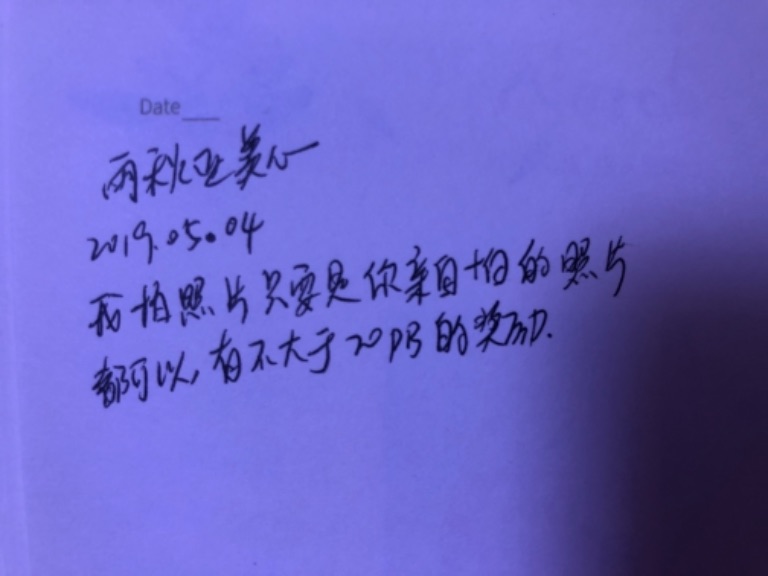 Date
雨秋亚美心
2019.05.04
我拍照片只要是你亲自拍的照片
都可以,有不大于20PB的奖励.